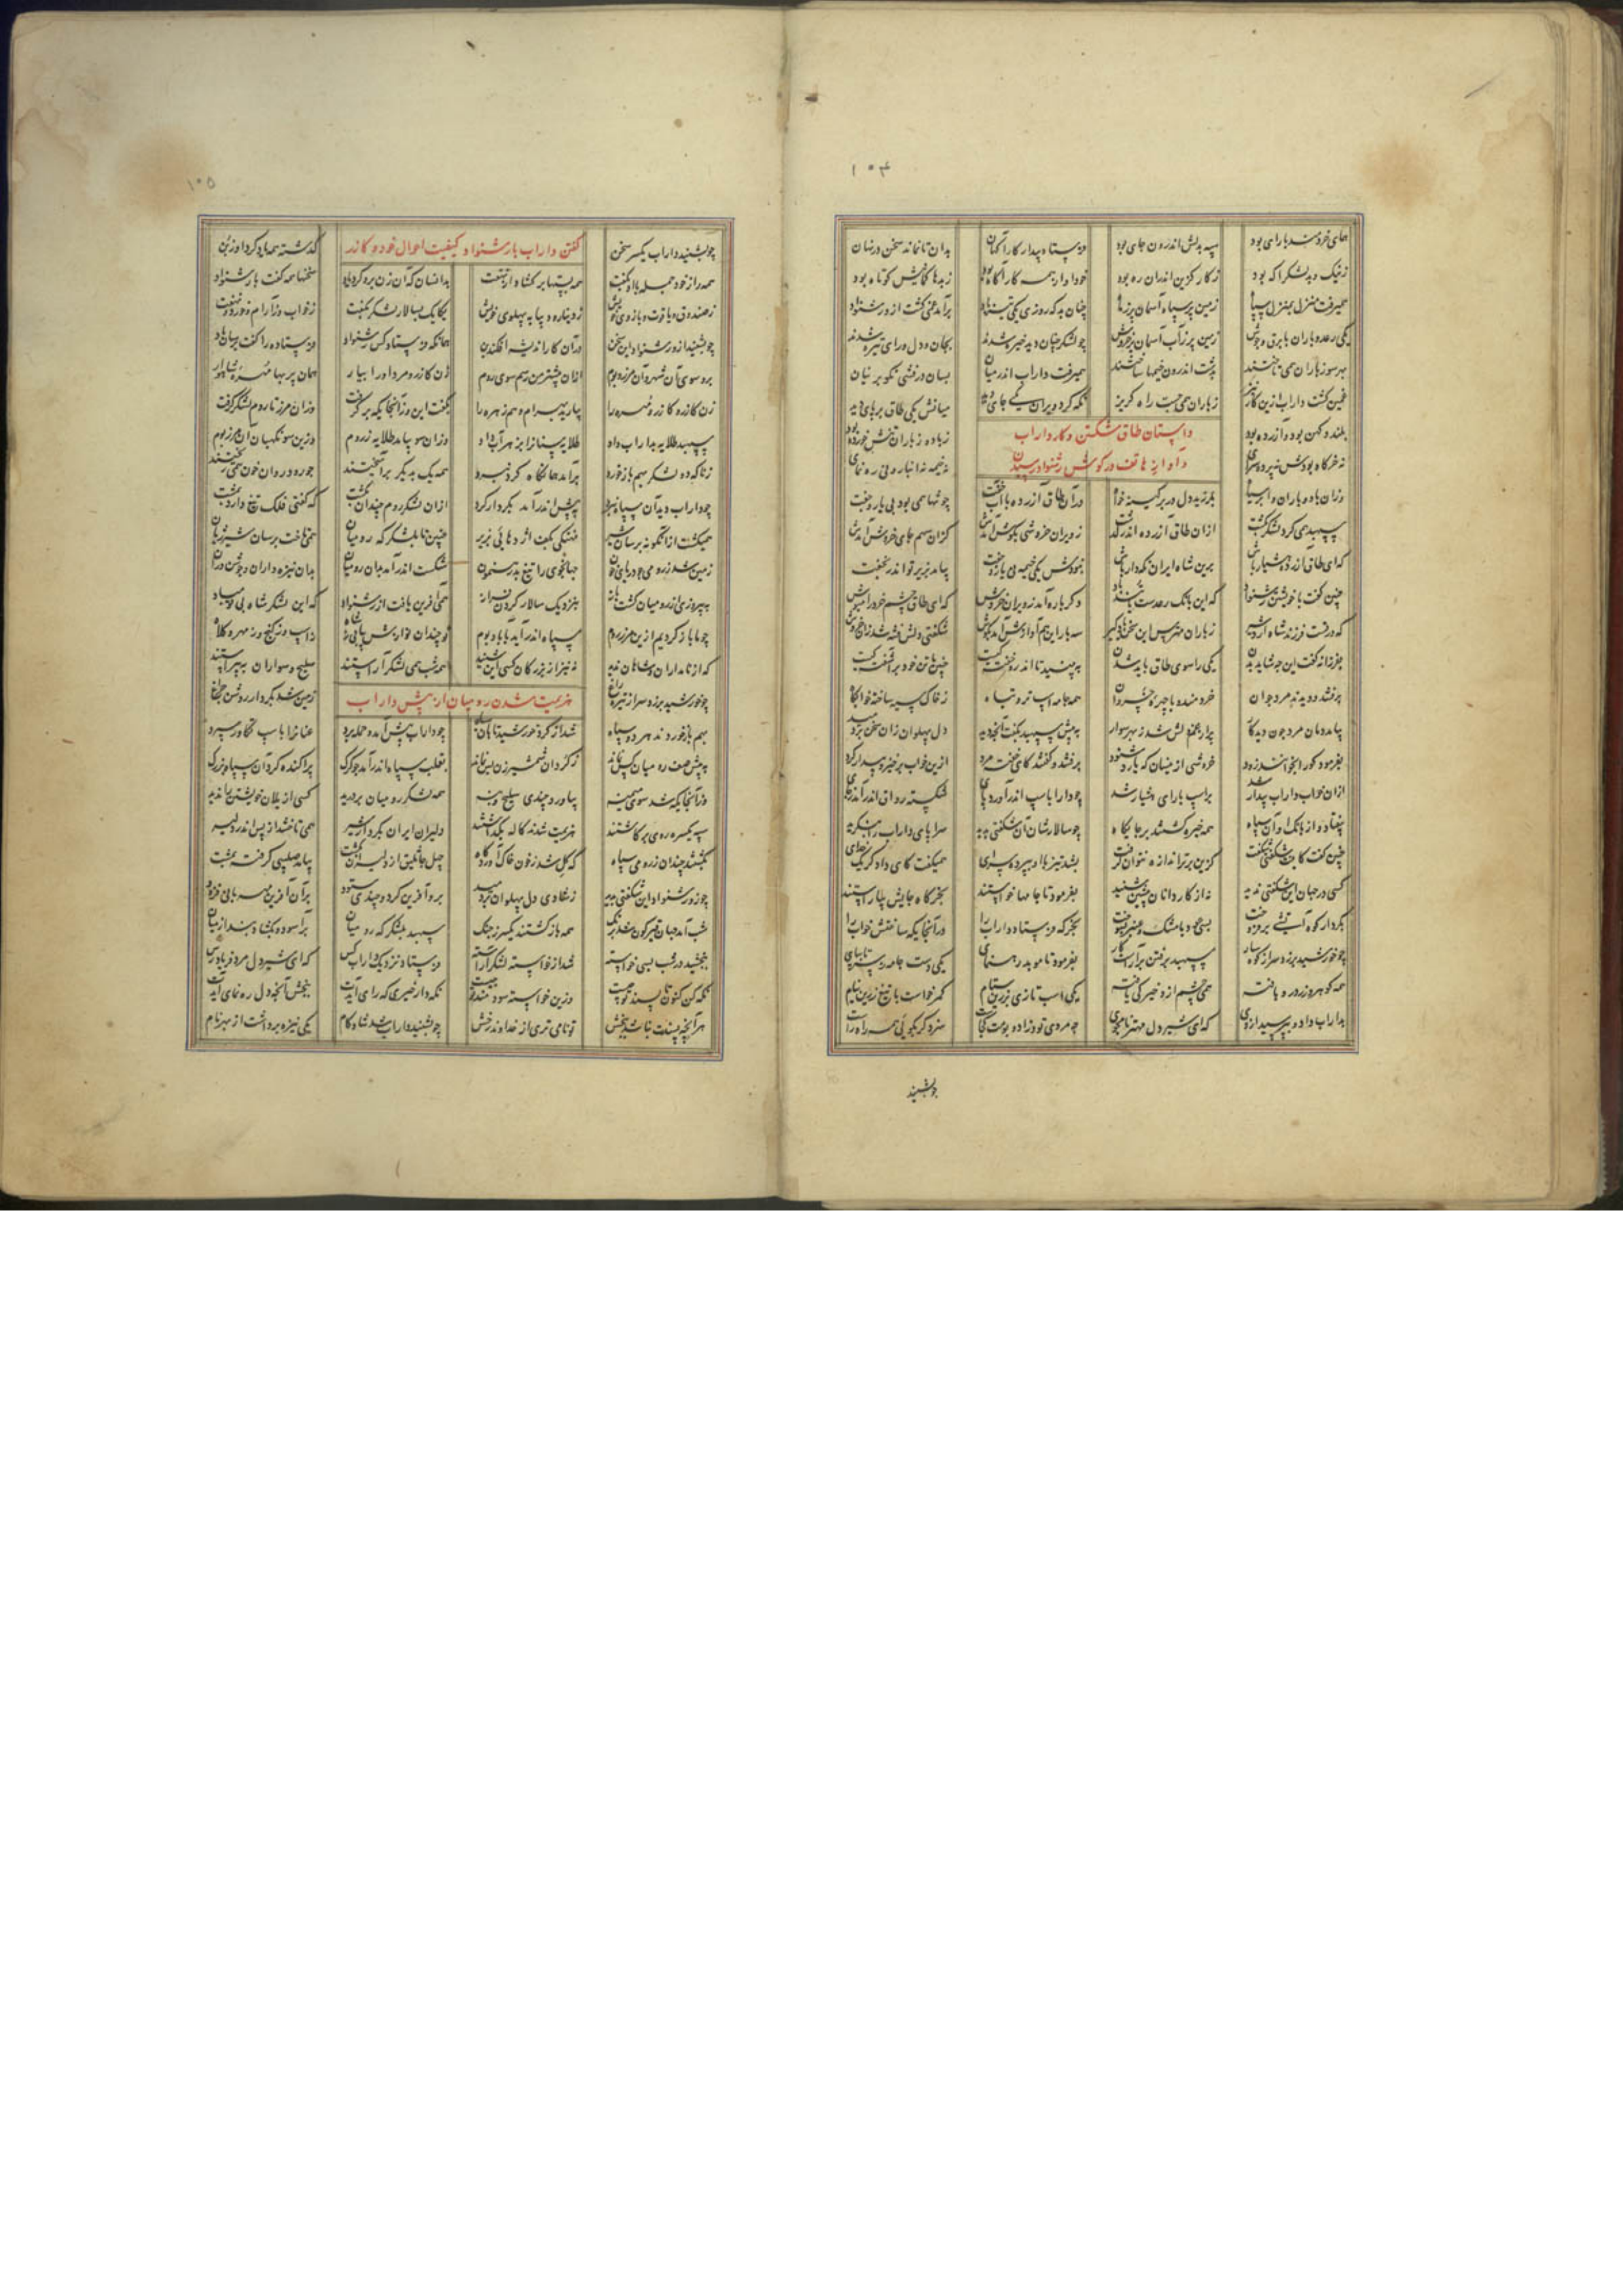 ۱۰۴
همای خردمند بارای بود سپه بدلش اندرون جای بود فرستاد بیدار کارآگهان بدان تا نماند سخن در نهان
ز نیک و بد لشکر آگه بود ز کار گزین اندران ره بود خود او از همه کار آگاه بود ز بدها گمانیش کوتاه بود
همیرفت منزل بمنزل سپاه زمین پر سپاه آسمان پر ز ماه چنان بد که روزی یکی تیز باد برآمد غمی گشت ازو رشنواد
یکی رعد و باران با برق و جوش زمین پر ز آب آسمان پر خروش چو لشکر چنان دید خیره شدند بجان و دل و رای تیره شدند
بهر سو ز باران همی تاختند بدشت اندرون خیمها ساختند همیرفت داراب اندر میان بسان درفشی نکو بر نیان
غمین گشت داراب ازین کار نیز ز باران همی جست راه گریز نگه کرد ویران یکی جای دید میانش یکی طاق بر پای دید
بلند و کهن بود و آزرده بود ز باد و ز باران تنش خورده بود
نه خرگاه بودش نه پرده سرای نه خیمه نه انباز و نی رهنمای
داستان طاق شکستن و کار داراب
و آواز هاتف در گوش رشنواد رسیدن
وزان باد و باران و ابر سیاه بلرزید دل در بر کینه خواه دران طاق آزرده با آب خفت چو تنها همی بود بی یار و جفت
سپهبد همی گرد لشکر بگشت ازان طاق آزرده اندر گذشت ز ویران خروشی بگوش آمدش کزان سهم جای خروش آمدش
که ای طاق آزرده هشیار باش برین شاه ایران نگهدار باش نبودش یکی خیمه و یار و جفت بیامد بزیر تو اندر بخفت
چنین گفت با خویشتن رشنواد که این بانگ رعدست یا تند باد دگر باره آمد ز ویران خروش که ای طاق چشم خرد را مپوش
که در تست فرزند شاه اردشیر ز باران مترس این سخن یاد گیر سه بار این هم آوازش آمد بگوش شگفتی دلش تنگ شد زان خروش
بفرزانه گفت این چه شاید بدن یکی را سوی طاق باید شدن ببینید تا اندرو خفته کیست چنین با تن خود برآشفته کیست
برفتند و دیدند مرد جوان خردمند و با چهره خسروان همه جامه و اسپ تر و تباه ز خاک سیه ساخته خوابگاه
به پیش سپهبد بگفت آنچه دید دل پهلوان زان سخن بردمید
بفرمود کورا بخوانید زود خروشی ازینسان که یارد شنود برفتند و گفتند کای خفته مرد ازین خواب برخیز و بیدار گرد
ازان خواب داراب بیدار شد براسپ بارای هشیار شد چو دارا باسپ اندر آورد پای شکسته رواق اندر آمد ز پای
بیفتاد و از بانگ او آن سپاه همه خیره گشتند بر جایگاه چو سالار شاه آن شگفتی بدید سراپای داراب را بنگرید
چنین گفت کاینت شگفتی شگفت کزین برتر اندازه نتوان گرفت بشد تیز با او بپرده سرای همیگفت کای دادگر یک خدای
کسی در جهان این شگفتی ندید نه از کاردانان پیشین شنید بفرمود تا جامها خواستند بخرگاه جایش بیاراستند
بکردار کوه آتشی برفروخت بسی عود با مشک و عنبر بسوخت بخرگه فرستاد داراب را در آنجایکه ساختش خواب را
چو خورشید برزد سر از کوهسار سپهبد برفتن برآراست کار بفرمود تا موبد رهنمای یکی دست جامه ز سر تا بپای
همه گوهر و زر درو بافته همی چشم ازو خیرگی یافته یکی اسپ تازی بزرین ستام کمر خواست با تیغ زرین نیام
بداراب داد و بپرسید ازوی که ای شیردل مهتر نامجوی چه مردی تو و زاد بومت کجاست سزد گر بگوئی همه راه راست
چو بشنید
۱۰۵
چو بشنید داراب یکسر سخن گذشته همه یاد کرد او ز بن
گفتن داراب با رشنواد کیفیت احوال خود و گازر
همه راز خود جمله با او بگفت همه بستها برگشاد از نهفت بدانسان که آن زن برو کرد یاد سخنها همه گفت با رشنواد
ز صندوق و یاقوت و بازوی خویش ز دینار و دیبا به پهلوی خویش یکایک بسالار لشکر بگفت ز خواب و ز آرام و خورد و نهفت
چو بشنید ازو رشنواد این سخن دران کار اندیشه افکند بن همانگه فرستاد کس رشنواد فرستاده را گفت برسان باد
زن گازر و گازر و مهره را بیارید بهرام و هم زهره را
برو سوی آن شهر و آن مرز و بوم ازان پیشتر من رسم سوی روم زن گازر و مرد او را بیار همان پر بها مهره شاهوار
بگفت این و زانجایکه برگرفت وزان مرز تا روم لشکر گرفت
سپهبد طلایه بداراب داد طلایه سنانرا بزهر آب داد وزان سو بیامد طلایه ز روم وزین سو نگهبان آن مرز و بوم
ز ناگه دو لشکر بهم باز خورد برآمد همانگاه گرد نبرد همه یک بدیگر برآمیختند چو رود روان خون همی ریختند
چو داراب دید آن سپاه نبرد به پیش اندر آمد بکردار گرد ازان لشکر روم چندان بکشت که گفتی فلک تیغ دارد بمشت
همیکشت ازانگونه برسان شیر نهنگی بکف اژدهائی بزیر چنین تا بلشکرگه رومیان همی تاخت برسان شیر ژیان
زمین شد ز رومی چو دریای خون جهانجوی را تیغ بد رهنمون شکست اندر آمد بران رومیان بدان نیزه داران و جوشن وران
به پیروزی از رومیان گشت باز بنزدیک سالار گردن فراز همی آفرین یافت از رشنواد که این لشکر شاه بی تو مباد
چو ما باز گردیم ازین مرز روم سپاه اندر آید بآباد بوم تو چندان نوازش بیابی ز شاه ز اسپ و ز گنج و ز مهر و کلاه
که از نامداران و شاهان ندید نه نیز از بزرگان کسی این شنید همه شب همی لشکر آراستند سلیح و سواران بپیراستند
چو خورشید برزد سر از تیره راغ زمین شد بکردار روشن چراغ
هزیمت شدن رومیان از پیش داراب
بهم باز خوردند هر دو سپاه شد از گرد خورشید تابان سیاه چو داراب پیش آمد و حمله برد عنانرا باسپ تگاور سپرد
به پیش صف رومیان کس نماند ز گردان شمشیرزن بس نماند بقلب سپاه اندر آمد چو گرگ پراکنده کرد آن سپاه بزرگ
وزآنجایکه شد سوی میمنه بیاورد چندی سلیح و بنه همه لشکر رومیان بردرید کسی از یلان خویشتن را ندید
سپه یکسره روی برگاشتند هزیمت شدند کاله بگذاشتند دلیران ایران بکردار شیر همی تاختند از پس اندر دلیر
بکشتند چندان ز رومی سپاه که گل شد ز خون خاک آوردگاه چهل جاثلیق از دلیران بکشت بیامد صلیبی گرفته بمشت
چو زو رشنواد این شگفتی بدید ز شادی دل پهلوان بردمید برو آفرین کرد و چندی ستود بران آفرین مهربانی فزود
شب آمد جهان قیرگون شد برنگ همه بازگشتند یکسر ز جنگ سپهبد بلشکرگه رومیان برآسود و بگشاد بند از میان
ببخشید در شب بسی خواسته شد از خواسته لشکر آراسته فرستاد نزدیک داراب کس که ای شیردل مرد فریادرس
نگه کن کنون تا پسند تو چیست وزین خواسته سودمند تو چیست نگه دار خیری که رای آیدت ببخش آنچه دل رهنمای آیدت
هر آنچه پسندت نباشد ببخش تو نامی تری از خداوند رخش چو بشنید داراب شد شادکام یکی نیزه برداشت از بهر نام